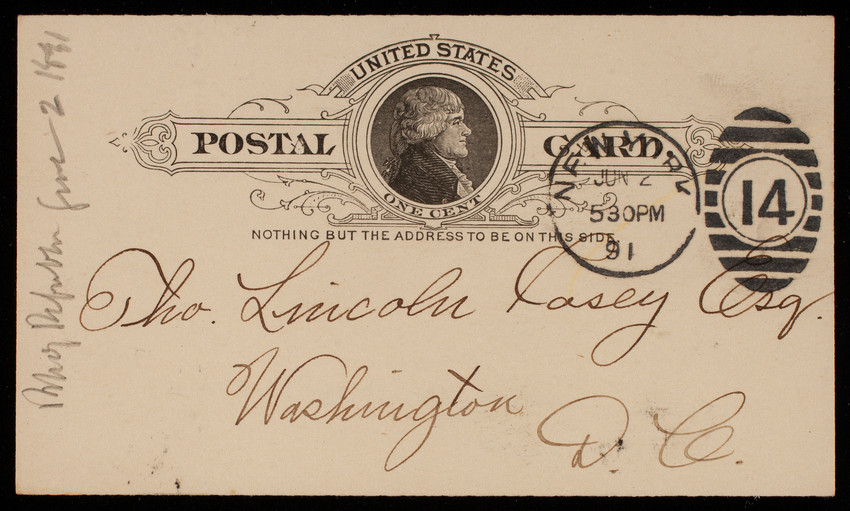 UNITED STATES
POSTAL CARD
ONE CENT
NOTHING BUT THE ADDRESS TO BE ON THIS SIDE.
NEW YORK
JUN 2
530PM
91
14
Tho. Lincoln Casey Esq.
Washington
D. C.
June 2 1891